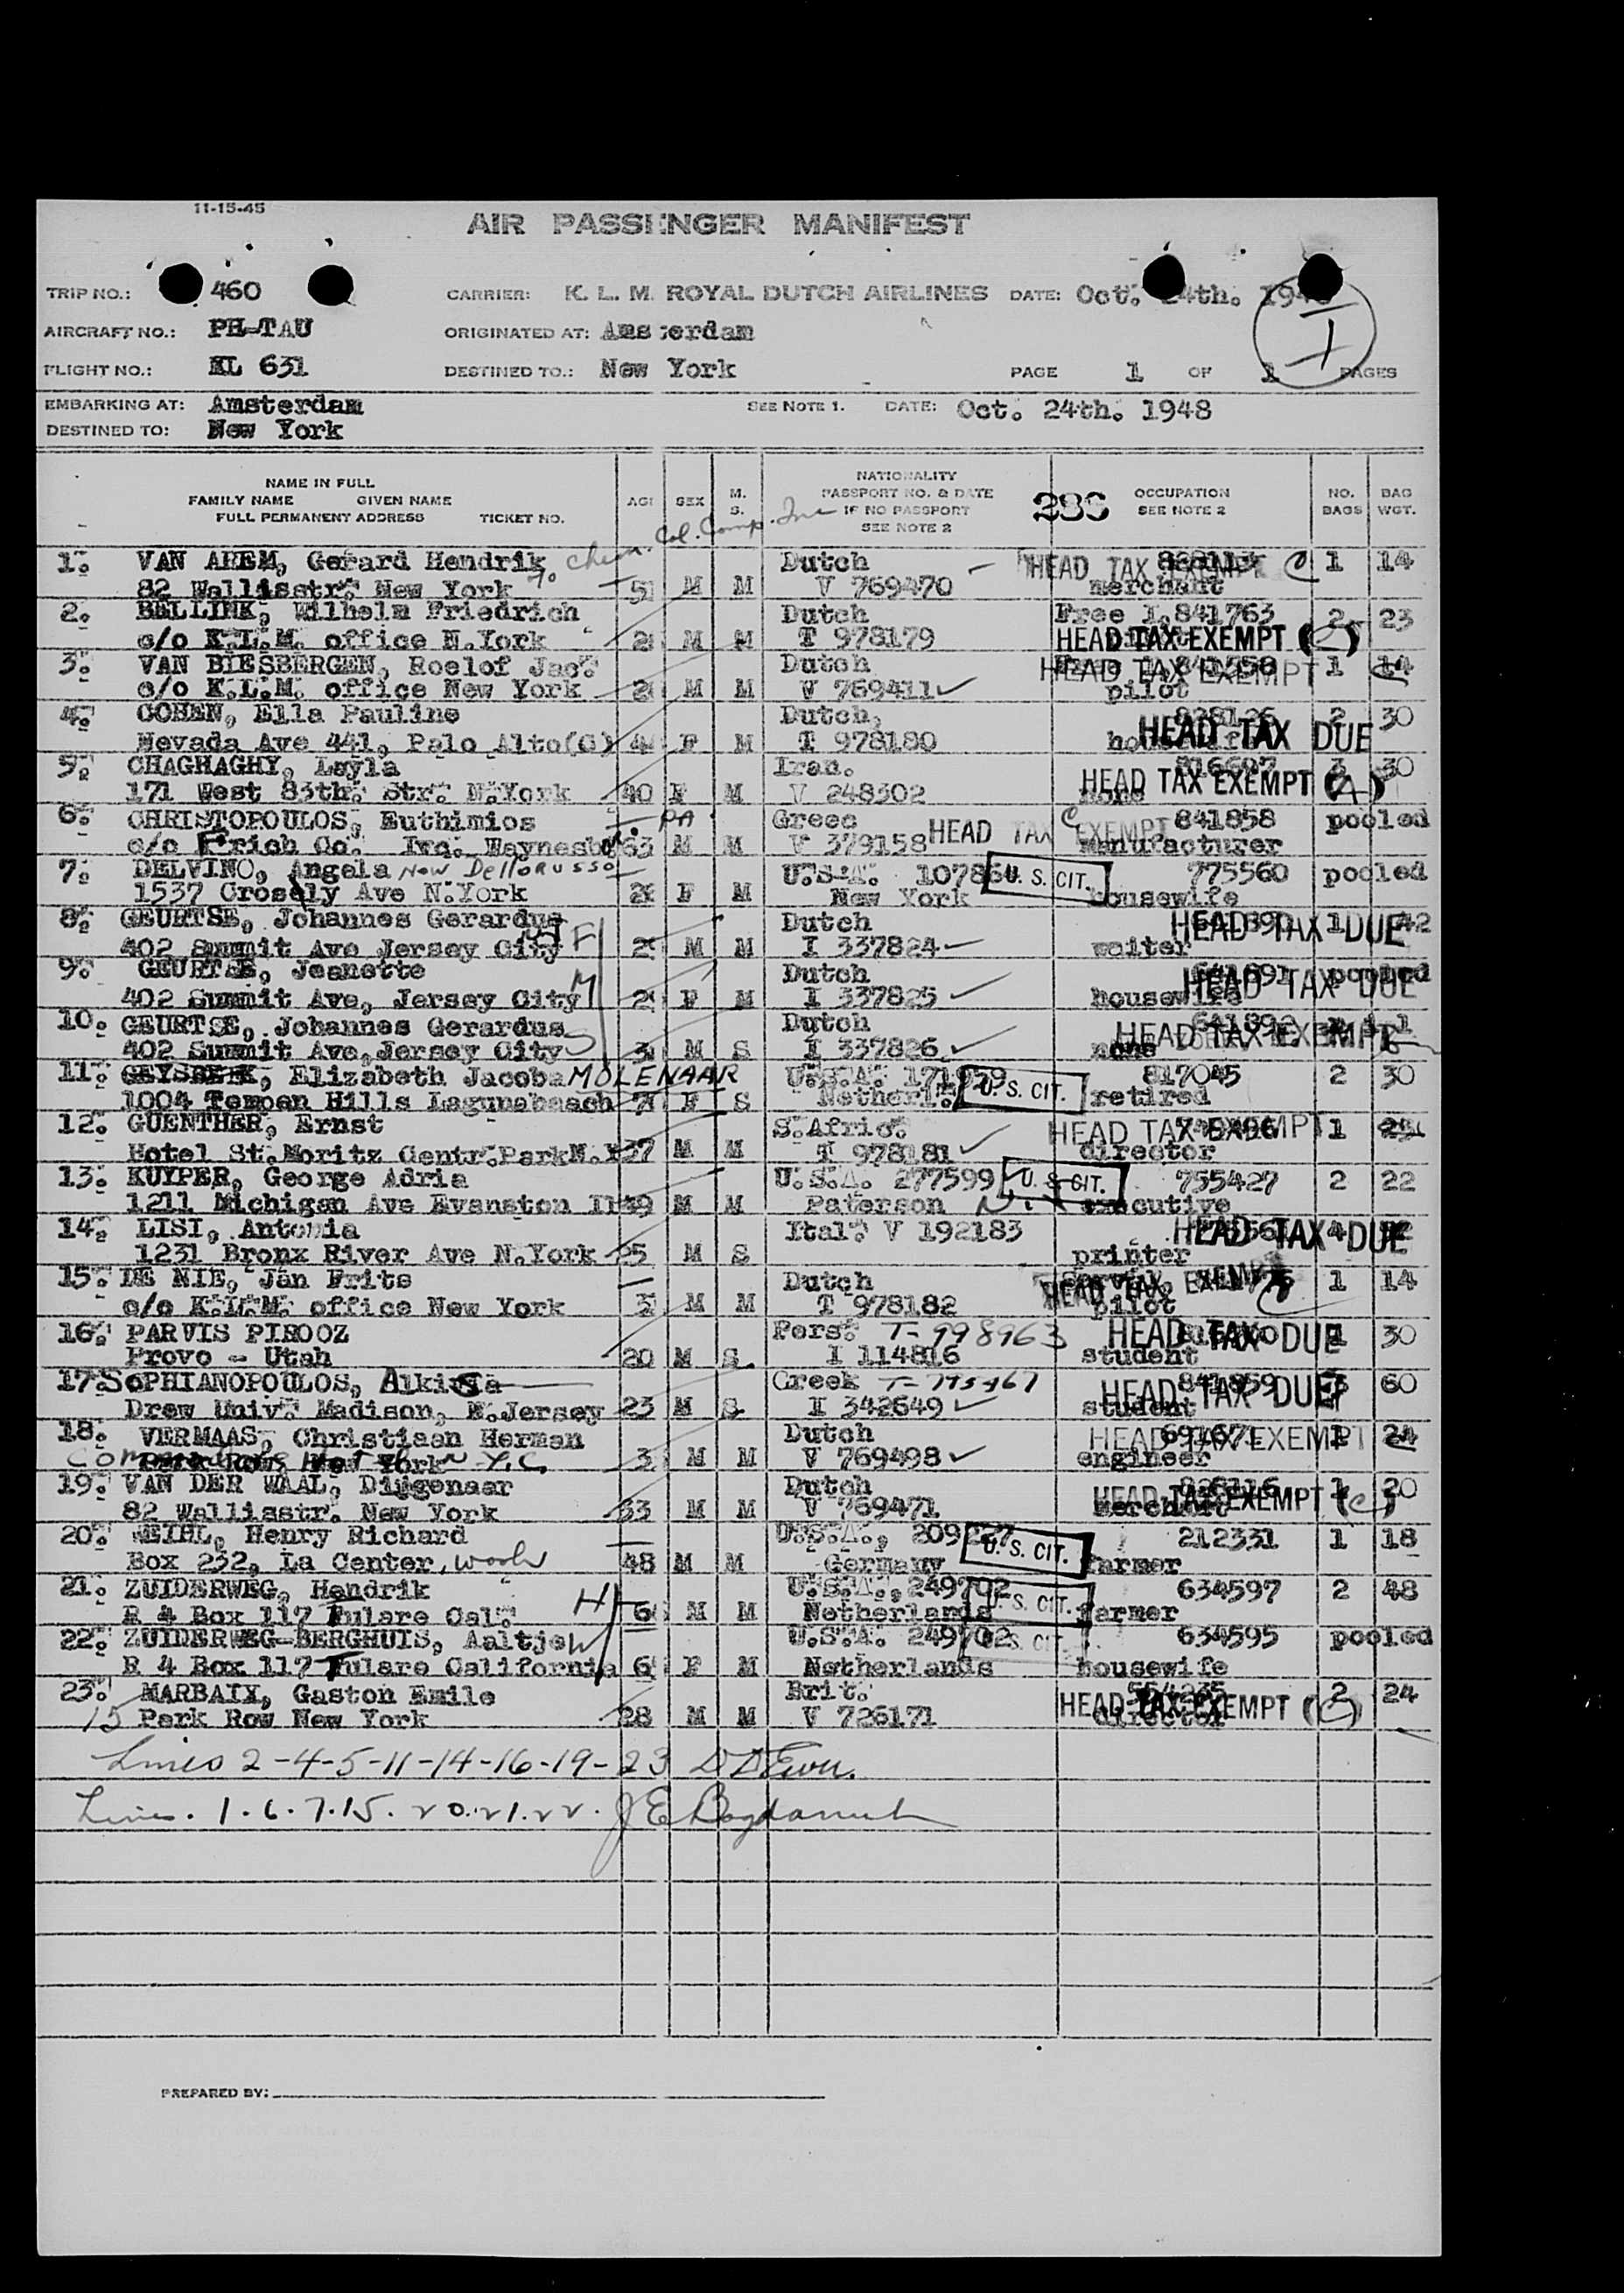 11-15-45
AIR PASSENGER MANIFEST
TRIP NO.: 460 CARRIER: K. L. M. ROYAL DUTCH AIRLINES DATE: Oct. 24th. 1948
AIRCRAFT NO.: PH-TAU ORIGINATED AT: Amsterdam
1
FLIGHT NO.: KL 631 DESTINED TO.: New York PAGE 1 OF 1 PAGES
EMBARKING AT: Amsterdam SEE NOTE 1. DATE: Oct. 24th. 1948
DESTINED TO: New York
NAME IN FULL
FAMILY NAME GIVEN NAME
FULL PERMANENT ADDRESS TICKET NO.
AGE SEX M. S.
NATIONALITY
PASSPORT NO. & DATE
IF NO PASSPORT
SEE NOTE 2
286 OCCUPATION
SEE NOTE 2
NO. BAGS
BAG WGT.
Chem. Col. Comp. Inc
1. VAN AREM, Gerard Hendrik Dutch HEAD TAX EXEMPT C 1 14
82 Wallisstr. New York M M V 769470 merchant
2. BELLINK, Wilhelm Friedrich Dutch Free 1,841763 2 23
c/o K.L.M. office N.York M M T 978179 HEAD TAX EXEMPT (C)
3. VAN BIESBERGEN, Roelof Jac. Dutch HEAD TAX EXEMPT 1 14
c/o K.L.M. office New York M M V 769411 pilot
4. COHEN, Ella Pauline Dutch, 828126 2 30
Nevada Ave 441, Palo Alto(C) F M T 978180 housewife HEAD TAX DUE
5. CHAGHAGHY, Leyla Iran. 816607 3 30
171 West 83th. Str. N.York 40 F M V 248302 none HEAD TAX EXEMPT (A)
6. CHRISTOPOULOS, Euthimios PA Greec HEAD TAX EXEMPT C 841858 pooled
c/o Frich Co. Inc. Waynesbo. 63 M M V 379158 Manufacturer
7. DELVINO, Angela Now DellORUSSO U.S.A. U. S. CIT. 775560 pooled
1537 Crosely Ave N.York F M New York housewife
8. GEURTSE, Johannes Gerardus Dutch HEAD TAX DUE 1 42
402 Summit Ave Jersey City F M M I 337824 waiter
9. GEURTSE, Jeanette Dutch HEAD TAX DUE pooled
402 Summit Ave, Jersey City M F M I 337825 housewife
10. GEURTSE, Johannes Gerardus Dutch HEAD TAX EXEMPT
402 Summit Ave, Jersey City S M S I 337826 none
11. GEYSBEEK, Elizabeth Jacoba MOLENAAR U.S.A. U. S. CIT. 817045 2 30
1004 Tempen Hills Lagunabeach F S Netherl. retired
12. GUENTHER, Ernst S.Afric. HEAD TAX EXEMPT 1
Hotel St.Moritz Centr.Park N.Y 37 M M T 978181 director
13. KUYPER, George Adria U.S.A. 277599 U. S. CIT. 755427 2 22
1211 Michigan Ave Evanston Il 49 M M Paterson N.J. executive
14. LISI, Antonia Ital. V 192183 HEAD TAX DUE
1231 Bronx River Ave N.York 25 M S printer
15. DE NIE, Jan Frits Dutch HEAD TAX EXEMPT 1 14
c/o K.L.M. office New York M M T 978182 pilot
16. PARVIS PIROOZ Pers. T-998963 HEAD TAX DUE 1 30
Provo - Utah 20 M S. I 114816 student
17. SOPHIANOPOULOS, Alkis Greek T-795467 841859 3 60
Drew Univ. Madison, N.Jersey 23 M S I 342649 student HEAD TAX DUE
18. VERMAAS, Christiaan Herman Dutch HEAD TAX EXEMPT 1 24
Commodore Hotel N.Y.C. M M V 769498 engineer
19. VAN DER WAAL, Dingenaar Dutch 828116 1 20
82 Wallisstr. New York 33 M M V 769471 merchant HEAD TAX EXEMPT (C)
20. WEIHL, Henry Richard U.S.A., 209227 U. S. CIT. 212331 1 18
Box 232, La Center, Wash 48 M M Germany farmer
21. ZUIDERWEG, Hendrik U.S.A., 249702 U. S. CIT. 634597 2 48
R 4 Box 117 Tulare Cal. H M M Netherlands farmer
22. ZUIDERWEG-BERGHUIS, Aaltje W U.S.A. 249702 U. S. CIT. 634595 pooled
R 4 Box 117 Tulare California F M Netherlands housewife
23. MARBAIX, Gaston Emile Brit. 554235 2 24
15 Park Row New York 28 M M V 726171 director HEAD TAX EXEMPT (C)
Lines 2-4-5-11-14-16-19-23
Lines. 1.6.7.15.20.21.22. J E
PREPARED BY: